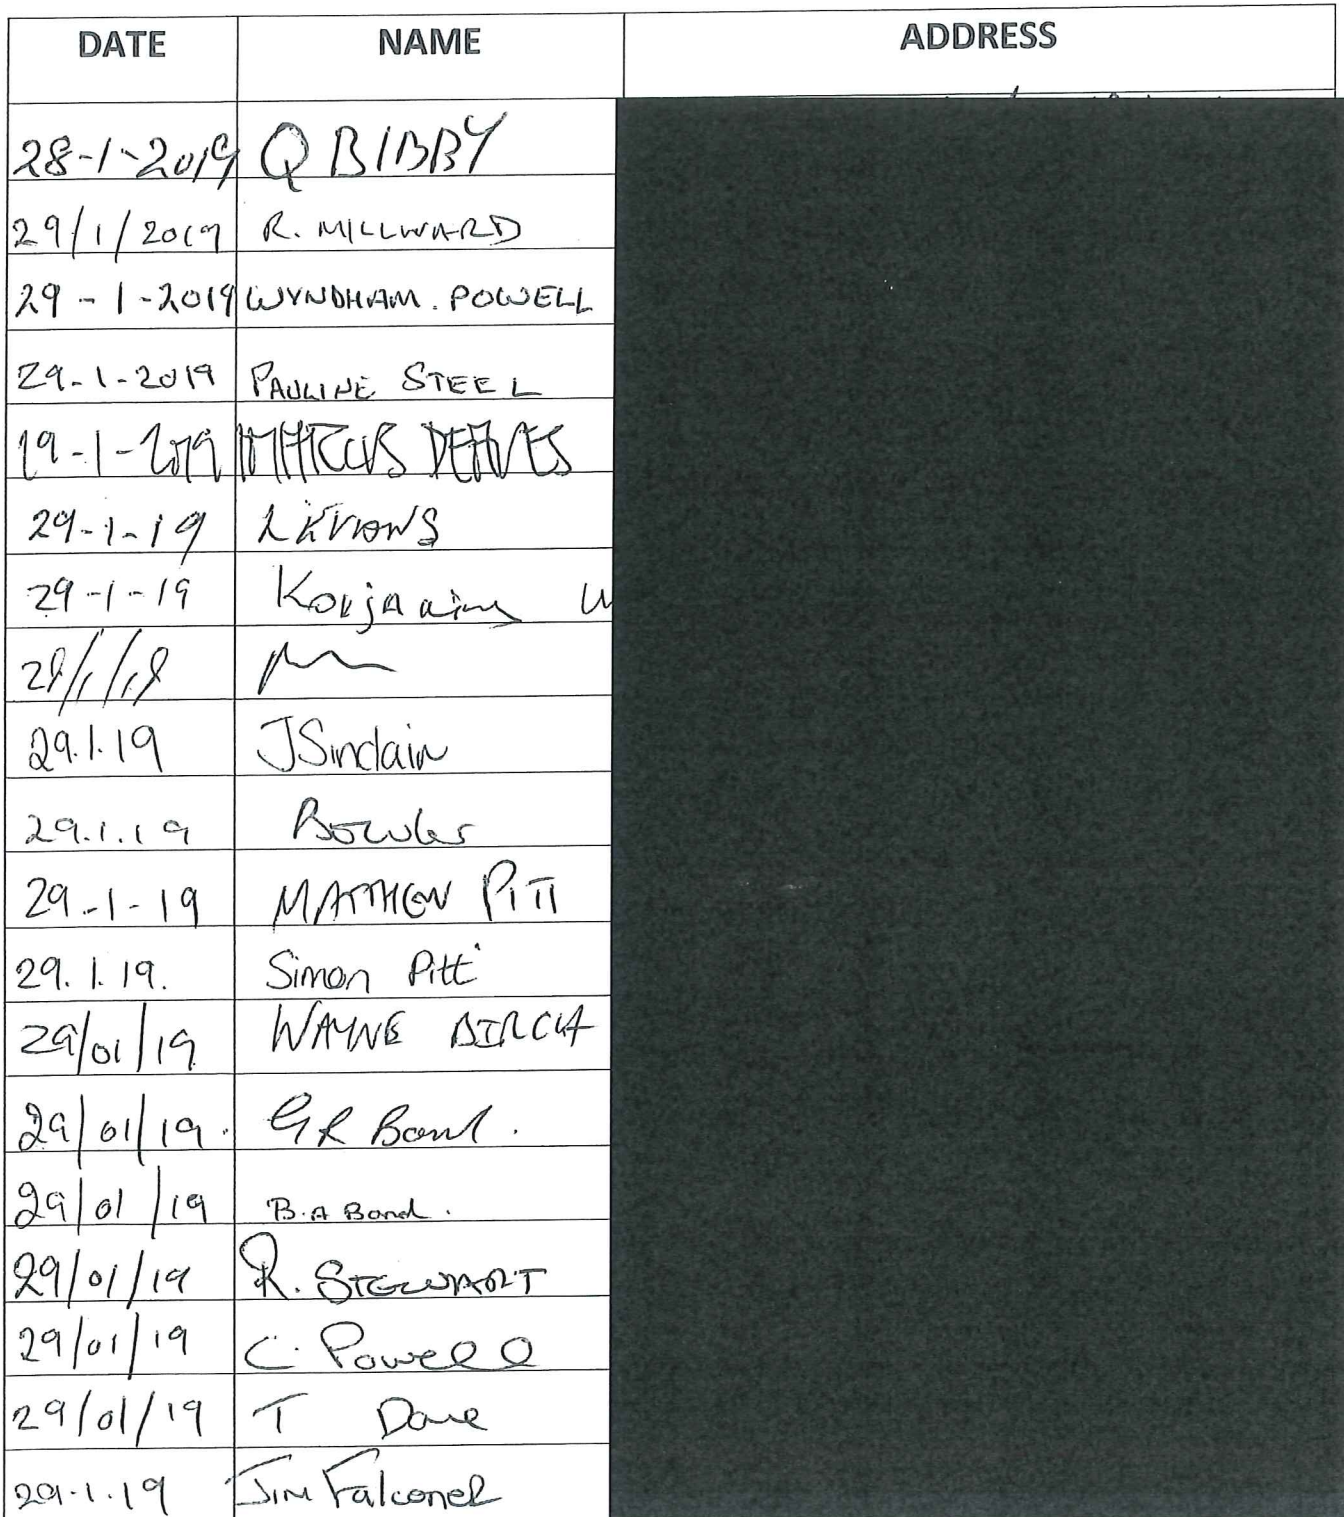 DATE NAME ADDRESS
28-1-2019 Q BIBBY
29/1/2019 R. MILLWARD
29-1-2019 WYNDHAM. POWELL
29-1-2019 PAULINE STEEL
19-1-2019 MARCUS DEAVES
29-1-19
29-1-19
29.1.19 J Sinclair
29.1.19 Bowler
29-1-19 MATTHEW PITT
29.1.19. Simon Pitt
29/01/19 WAYNE BIRCH
29/01/19. GR Bond.
29/01/19 B.A Bond.
29/01/19 R. STEWART
29/01/19 C. Powell
29/01/19 T
29.1.19 Jim Falconer